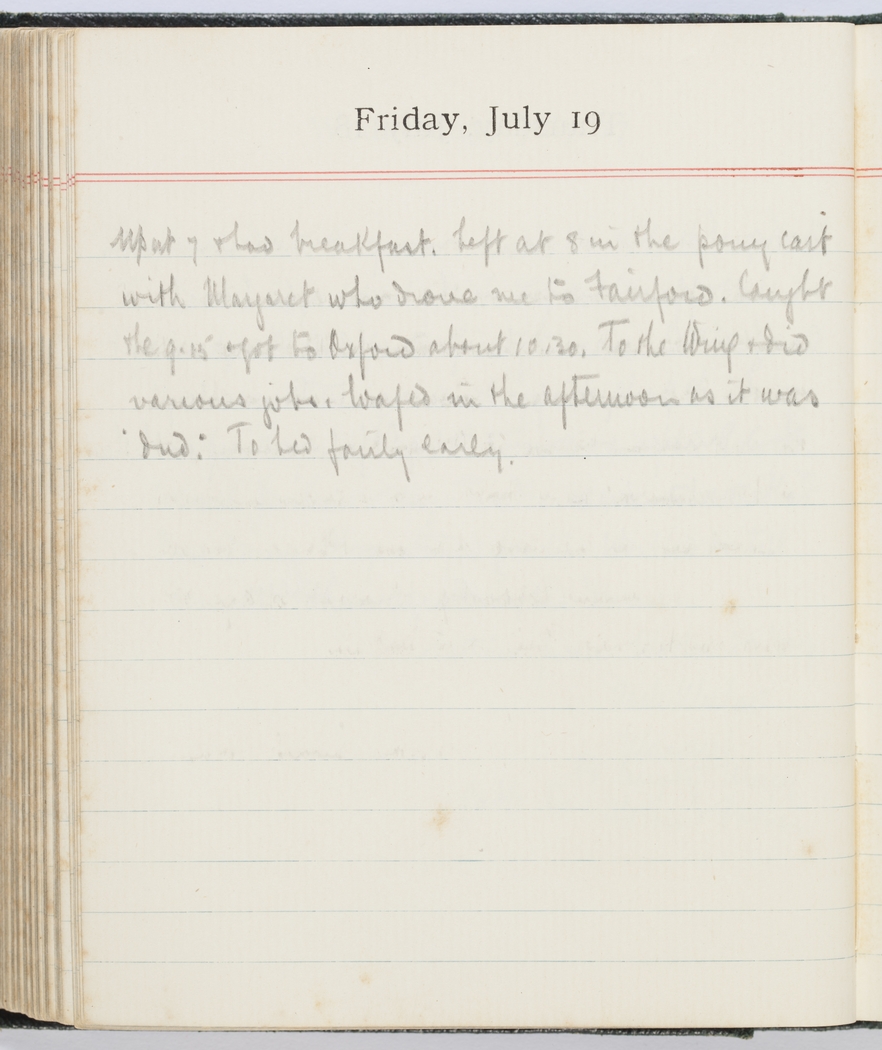 Friday, July 19
Up at 7 & had breakfast. Left at 8 in the pony cart
with Margaret who drove me to Fairford. Caught
the 9.15 & got to Oxford about 10.30. To the Wing & did
various jobs. Loafed in the afternoon as it was
'dud'. To bed fairly early.